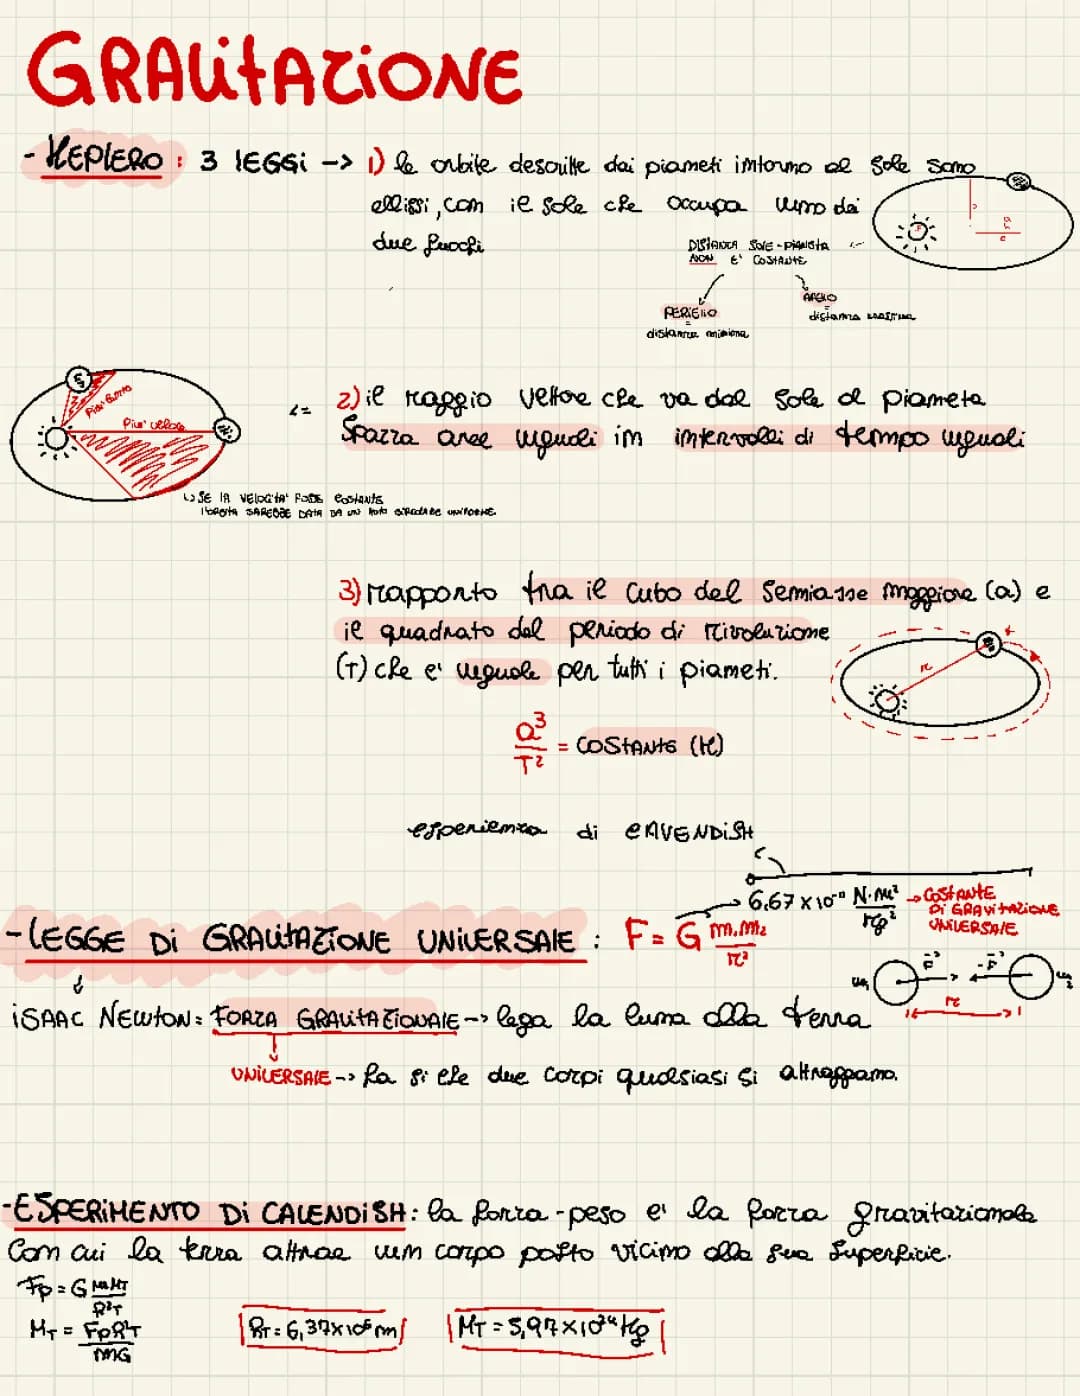 GRAVITAZIONE
- KEPLERO : 3 LEGGI -> 1) le orbite descritte dai pianeti intorno al Sole sono
ellissi, con il sole che occupa uno dei
due fuochi
DISTANZA SOLE-PIANETA
NON E' COSTANTE
PERIELIO
=
distanza minima
AFELIO
=
distanza massima
2) il raggio vettore che va dal Sole al pianeta
Spazza aree uguali in intervalli di tempo uguali
Più lento
Più veloce
SE LA VELOCITA' FOSSE COSTANTE
l'ORBITA SAREBBE DATA DA UN MOTO CIRCOLARE UNIFORME.
3) rapporto tra il cubo del semiasse maggiore (a) e
il quadrato del periodo di rivoluzione
(T) che e' uguale per tutti i pianeti.
r
t
a³/T² = COSTANTE (K)
esperienza di CAVENDISH
6,67 x 10⁻¹¹ N·m²/kg² -> COSTANTE
DI GRAVITAZIONE
UNIVERSALE
- LEGGE DI GRAVITAZIONE UNIVERSALE : F = G m₁m₂/r²
m₁ F -F m₂
r
ISAAC NEWTON: FORZA GRAVITAZIONALE -> lega la luna alla terra
UNIVERSALE -> fa si che due corpi qualsiasi si attraggano.
- ESPERIMENTO DI CAVENDISH: la forza-peso e' la forza gravitazionale
Con cui la terra attrae un corpo posto vicino alla sua superficie.
Fp = G mMT/R²T
MT = FpR²T/mG
RT = 6,37x10⁶ m
MT = 5,97x10²⁴ kg